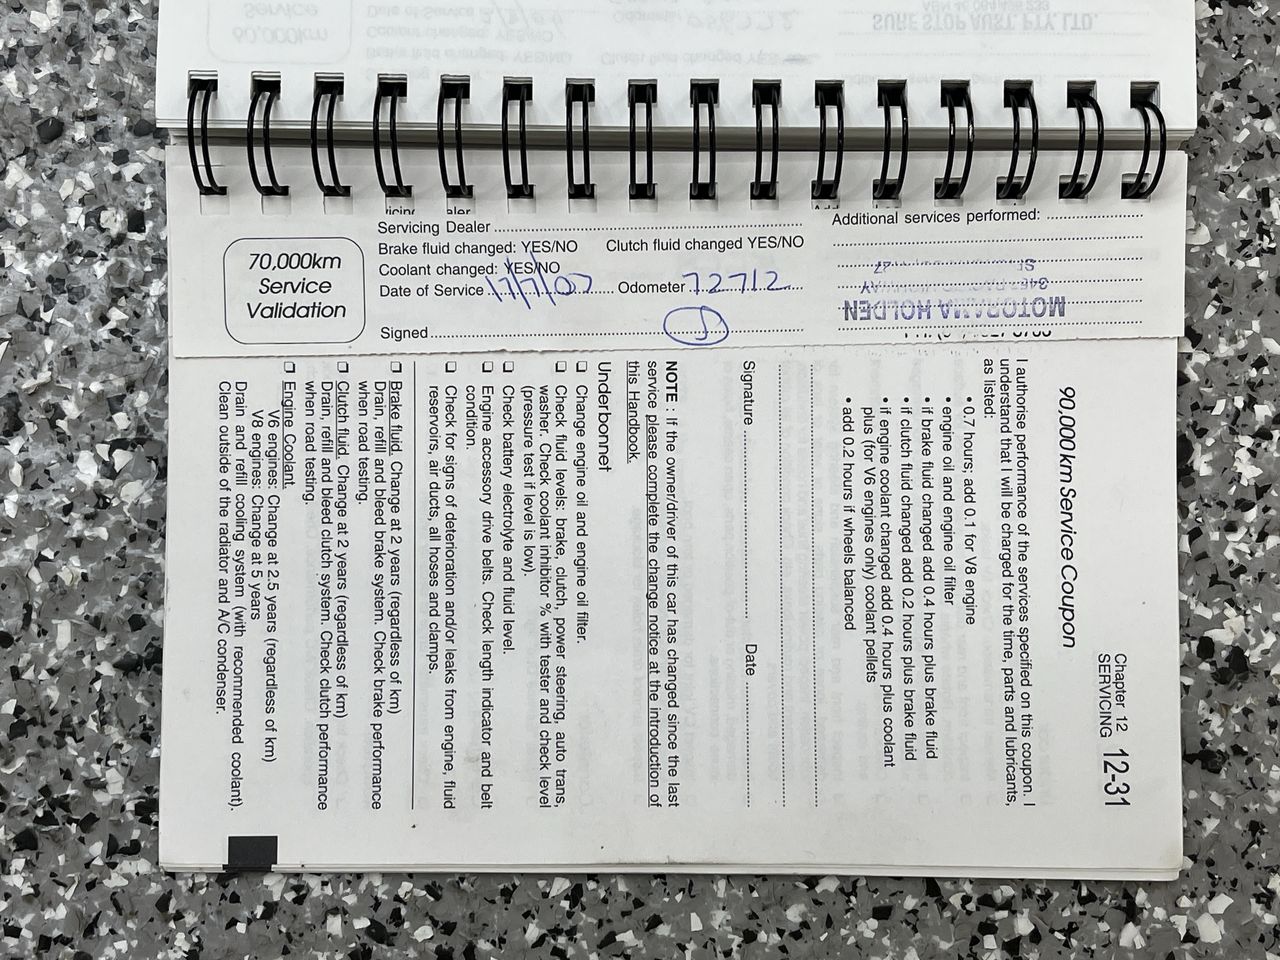 70,000km
Service
Validation
Servicing Dealer
Brake fluid changed: YES/NO Clutch fluid changed YES/NO
Coolant changed: YES/NO
Date of Service 17/7/07 Odometer 72712
Signed
Additional services performed:
MOTORAMA HOLDEN
Chapter 12
SERVICING 12-31
90,000 km Service Coupon
I authorise performance of the services specified on this coupon. I
understand that I will be charged for the time, parts and lubricants,
as listed:
• 0.7 hours; add 0.1 for V8 engine
• engine oil and engine oil filter
• if brake fluid changed add 0.4 hours plus brake fluid
• if clutch fluid changed add 0.2 hours plus brake fluid
• if engine coolant changed add 0.4 hours plus coolant
plus (for V6 engines only) coolant pellets
• add 0.2 hours if wheels balanced
Signature Date
NOTE : If the owner/driver of this car has changed since the last
service please complete the change notice at the introduction of
this Handbook.
Underbonnet
❑ Change engine oil and engine oil filter.
❑ Check fluid levels: brake, clutch, power steering, auto trans,
washer. Check coolant inhibitor % with tester and check level
(pressure test if level is low).
❑ Check battery electrolyte and fluid level.
❑ Engine accessory drive belts. Check length indicator and belt
condition.
❑ Check for signs of deterioration and/or leaks from engine, fluid
reservoirs, air ducts, all hoses and clamps.
❑ Brake fluid. Change at 2 years (regardless of km)
Drain, refill and bleed brake system. Check brake performance
when road testing.
❑ Clutch fluid. Change at 2 years (regardless of km)
Drain, refill and bleed clutch system. Check clutch performance
when road testing.
❑ Engine Coolant.
V6 engines: Change at 2.5 years (regardless of km)
V8 engines: Change at 5 years
Drain and refill cooling system (with recommended coolant).
Clean outside of the radiator and A/C condenser.